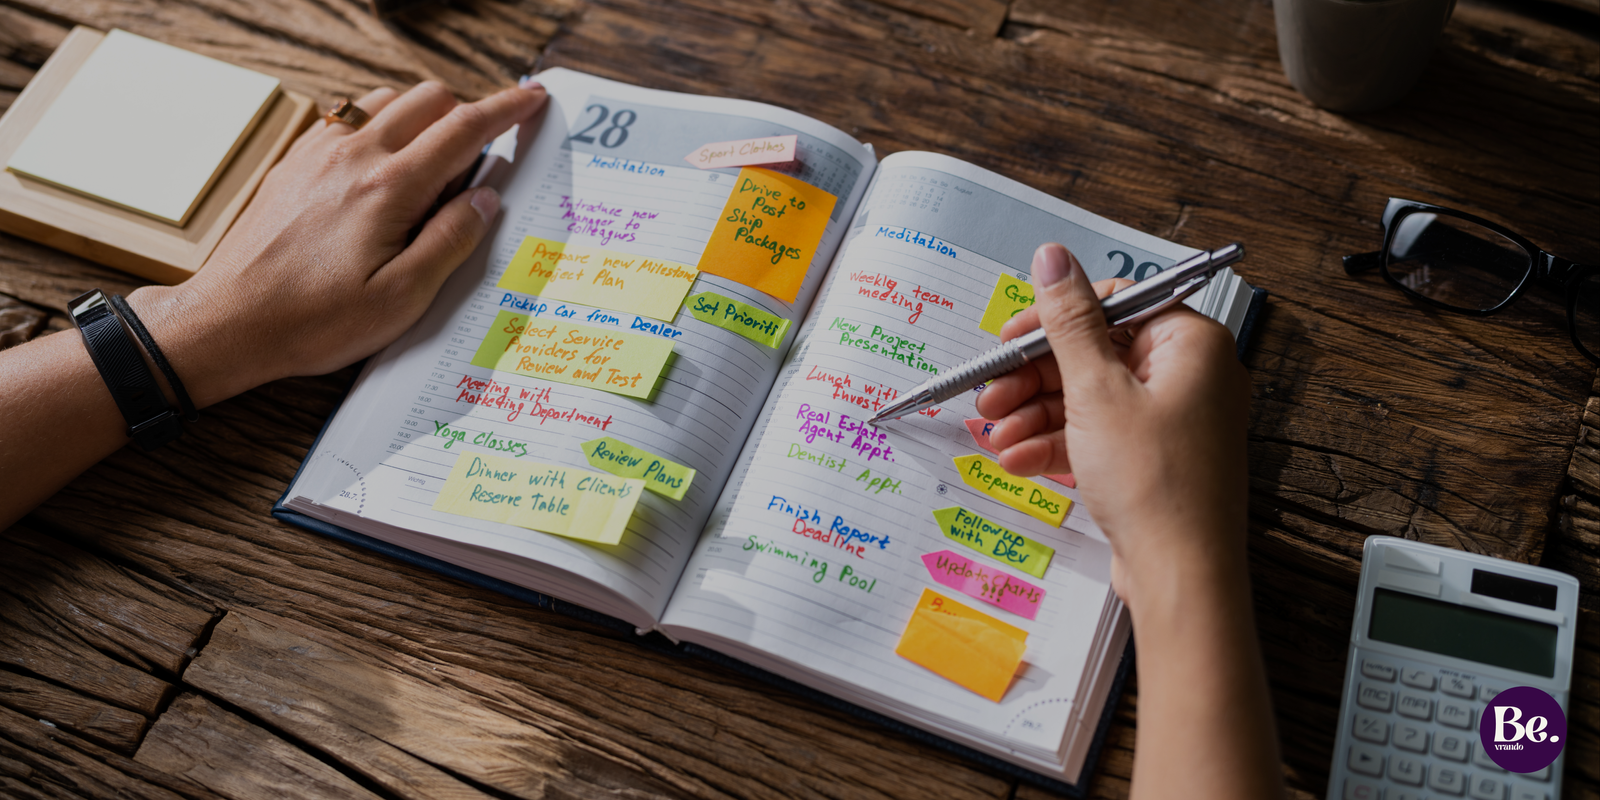 28
Sport Clothes
Meditation
Drive to
Post
Ship
Packages
Introduce new
Manager to
Colleagues
Prepare new Milestone
Project Plan
Set Priority
Pickup Car from Dealer
Select Service
Providers for
Review and Test
Meeting with
Marketing Department
Yoga Classes
Review Plans
Dinner with Clients
Reserve Table
28.7.
29
Meditation
Weekly team
meeting
New Project
Presentation
Lunch with
Real Estate
Agent Appt.
Dentist Appt.
Prepare Docs
Finish Report
Deadline
Follow up
with Dev
Swimming Pool
Update Charts
!!!
MC
MR
M-
Be.
vrando